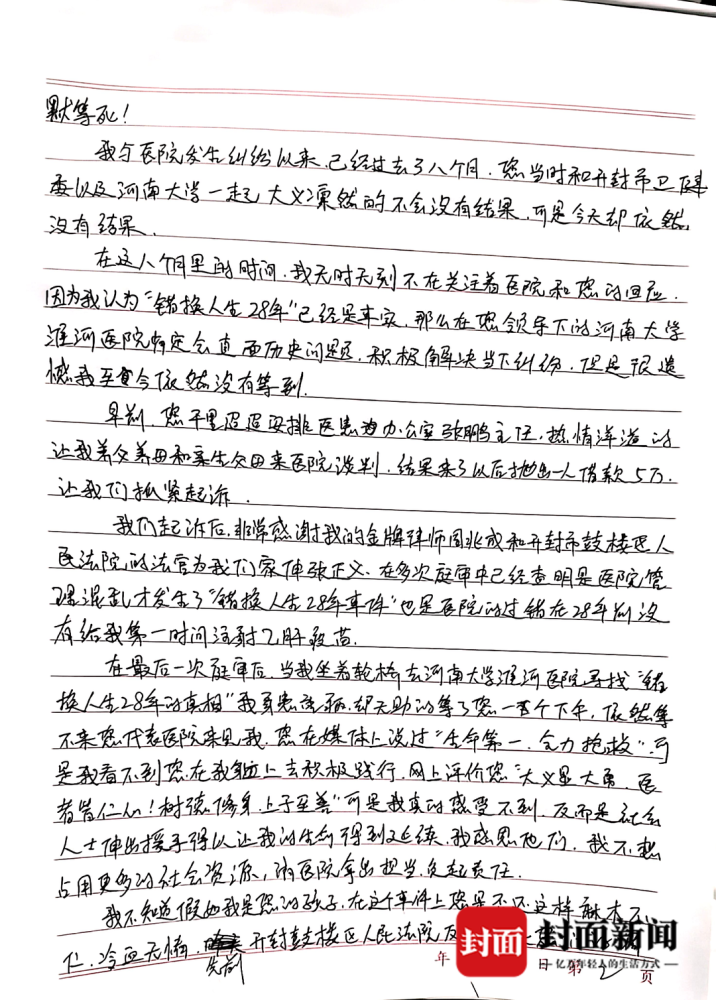 默等死！
我与医院发生纠纷以来，已经过去了八个月，您当时和开封市卫健
委以及河南大学一起大义凛然的不会没有结果，可是今天却依然
没有结果。
在这八个月里的时间，我无时无刻不在关注着医院和您的回应，
因为我认为“错换人生28年”已经是事实，那么在您领导下的河南大学
淮河医院肯定会直面历史问题，积极解决当下纠纷，但是很遗
憾我至今依然没有等到。
早前，您千里迢迢安排医患办公室张鹏主任，热情洋溢的
让我养父养母和亲生父母来医院谈判，结果来了以后抛出一人借款5万，
让我们抓紧起诉。
我们起诉后，非常感谢我的金牌律师周兆成和开封市鼓楼区人
民法院的法官为我们家伸张正义，在多次庭审中已经查明是医院管
理混乱才发生了“错换人生28年事件”也是医院的过错在28年前没
有给我第一时间注射乙肝疫苗。
在最后一次庭审后，当我坐着轮椅去河南大学淮河医院寻找“错
换人生28年的真相”我身患重病，却无助的等了您一个下午，依然等
不来您代表医院来见我，您在媒体上说过“生命第一，全力抢救”可
是我看不到您在我身上去积极践行，网上评价您“大义显大勇，医
者皆仁心！树德修身，上于至善”可是我真的感受不到，反而是社会
人士伸出援手得以让我的生命得到延续，我感恩他们，我不想
占用更多的社会资源，请医院拿出担当，负起责任。
我不知道假如我是您的孩子，在这个事件上您是不还这样麻木不
仁，冷血无情，先前开封鼓楼区人民法院
年 日 第 2 页
封面 封面新闻
亿万年轻人的生活方式